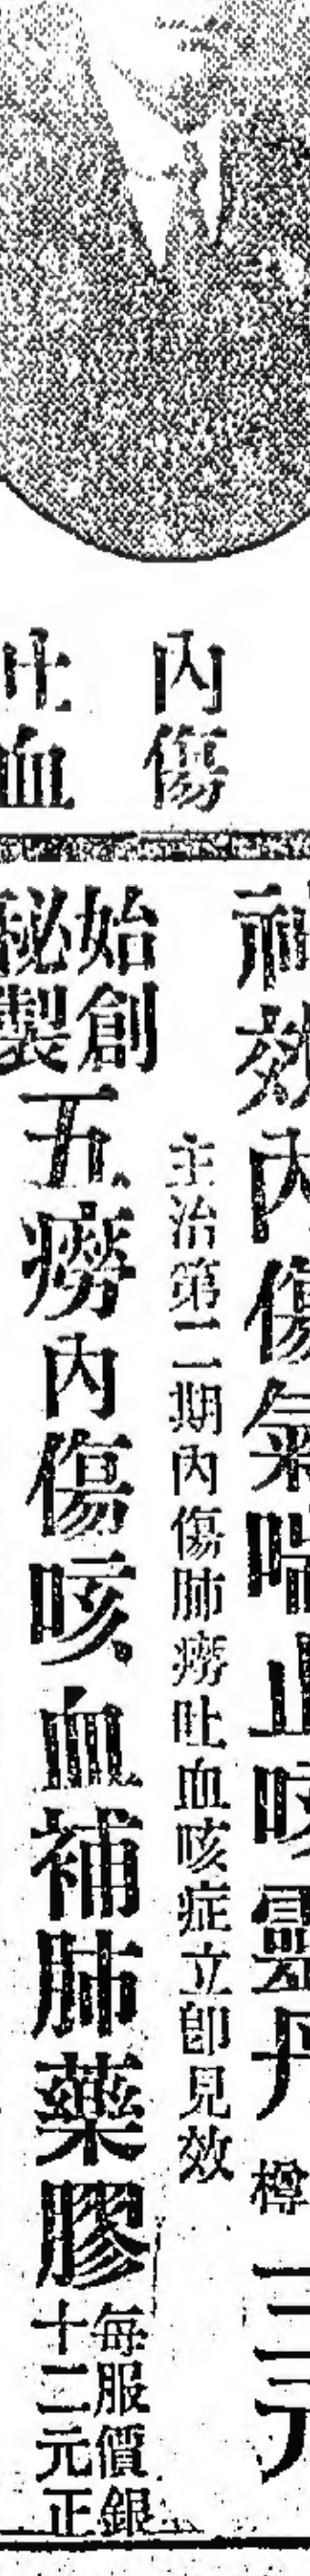 內傷
吐血
神效內傷氣喘止咳靈丹 樽三元
主治第二期內傷肺癆吐血咳症立即見效
始創
秘製
五癆內傷咳血補肺藥膠
每服價銀
十二元正